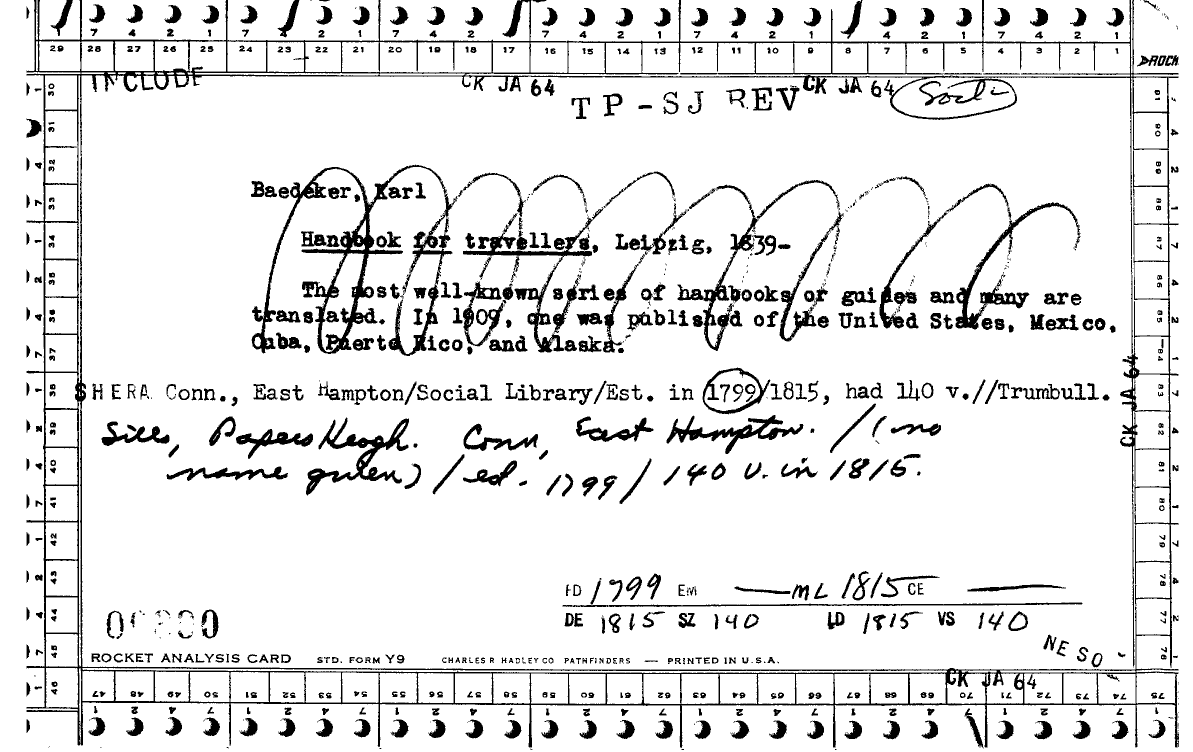 1 7 4 2 1 7 4 2 1 7 4 2 1 7 4 2 1 7 4 2 1 7 4 2 1
29 28 27 26 25 24 23 22 21 20 19 18 17 16 15 14 13 12 11 10 9 8 7 6 5 4 3 2 1
INCLUDE CK JA 64 TP-SJ REV CK JA 64
Baedeker, Karl
Handbook for travellers, Leipzig, 1839-
The most well-known series of handbooks or guides and many are
translated. In 1909, one was published of the United States, Mexico,
Cuba, Puerto Rico, and Alaska.
SHERA Conn., East Hampton/Social Library/Est. in 1799/1815, had 140 v.//Trumbull.
CK JA 64
Sills, Papers Keogh. Conn, East Hampton. / (no
name given) / est. 1799 / 140 v. in 1815.
FD 1799 EM — ML 1815 CE —
DE 1815 SZ 140 LD 1815 VS 140
NE SO -
ROCKET ANALYSIS CARD STD. FORM Y9 CHARLES R HADLEY CO PATHFINDERS — PRINTED IN U.S.A.
CK JA 64
47 48 49 50 51 52 53 54 55 56 57 58 59 60 61 62 63 64 65 66 67 68 69 70 71 72 73 74 75